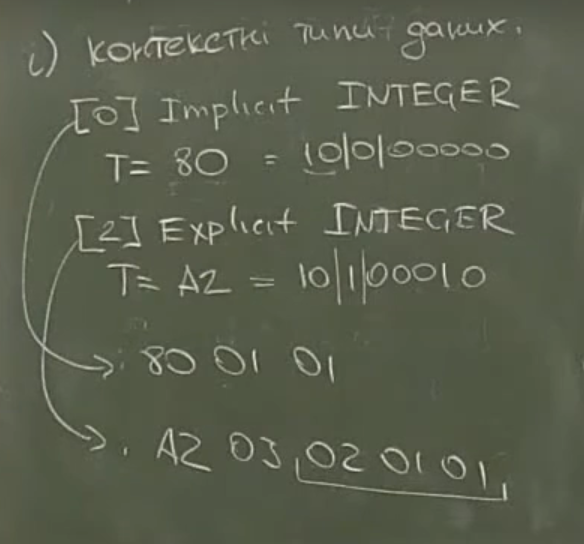 i) контекстні типи даних.
[0] Implicit INTEGER
T= 80 = 10|0|00000
[2] Explicit INTEGER
T= A2 = 10|1|00010
80 01 01
A2 03 02 01 01